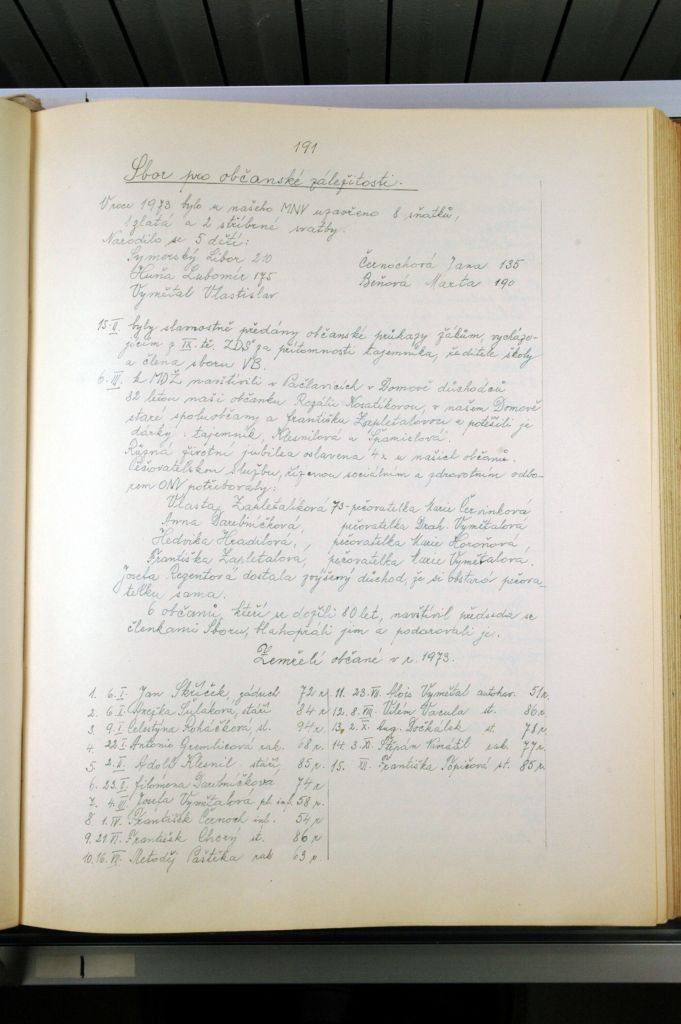 191
Sbor pro občanské záležitosti.
V roce 1973 bylo u našeho MNV uzavřeno 8 sňatků,
1 zlatá a 2 stříbrné svatby.
Narodilo se 5 dětí:
Symerský Libor 210
Černochová Jana 135
Huňa Lubomír 175
Beňová Marta 190
Vymětal Vlastislav
15.II. byly slavnostně předány občanské průkazy žákům, vycházejícím
z IX. tř. ZDŠ za přítomnosti tajemníka, ředitele školy
a člena sboru VB.
6.III. k MDŽ navštívili v Pačlavicích v Domově důchodců
82 letou naši občanku Rozálii Nosálikovou, v našem Domově
staré spoluobčany a Františku Zapletalovou a potěšili je
dárky: tajemník, Klesnilová a Španielová.
Různá životní jubilea oslavena 4x u našich občanů.
Pečovatelskou službu, řízenou sociálním a zdravotním odbo-
rem ONV potřebovaly:
Vlasta Zapletalíková 73 - pečovatelka Marie Červinková
Anna Darebníčková, pečovatelka Drah. Vymětalová
Hedvika Hradilová, pečovatelka Marie
Františka Zapletalová, pečovatelka Marie Vymětalová.
Josefa Regentová dostala zvýšený důchod, že si obstará pečova-
telku sama.
6 občanů, kteří se dožili 80 let, navštívil předseda se
členkami Sboru, blahopřáli jim a podarovali je.
Zemřelí občané v r. 1973.
1. 6.I. Jan Skříček, záduch 72 r.
2. 6.I. Anežka Suláková, stáří 84 r.
3. 9.I. Celestýna Roháčková st. 94 r.
4. 22.I. Antonie Gremlicová rak. 68 r.
5. 2.II. Adolf Klesnil stáří 85 r.
6. 23.II. Filomena Darebníčková 74 r.
7. 4.III. Josefa Vymětalová inf. 58 r.
8. 1.IV. František Černoch inf. 54 r.
9. 21.VI. František st. 86 r.
10. 16.VI. Metoděj Paštěka rak 63 r.
11. 23.VII. Alois Vymětal autohav. 51 r.
12. 8.VIII. Vilém Vacula st. 86 r.
13. 2.X. Aug. Dočkálek st. 78 r.
14. 3.XI. Štěpán rak. 77 r.
15. XII. Františka Popišová st. 85 r.